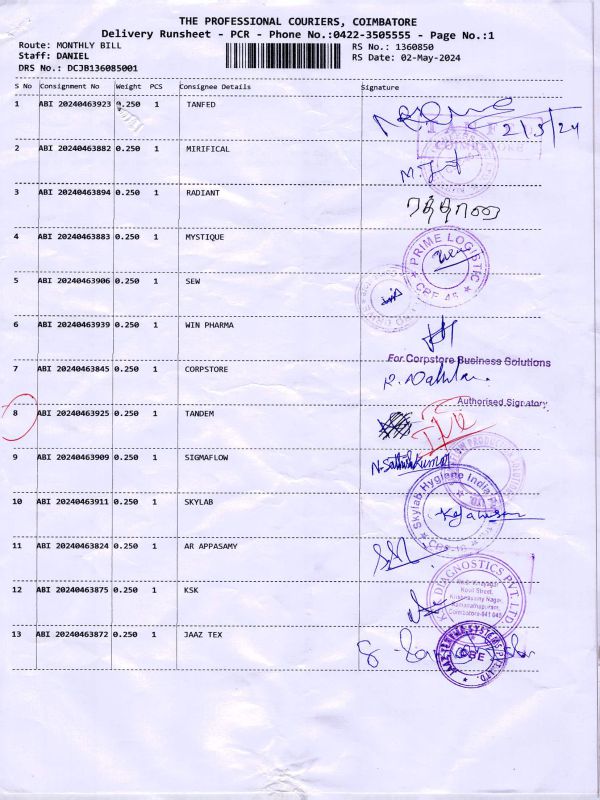 THE PROFESSIONAL COURIERS, COIMBATORE
Delivery Runsheet - PCR - Phone No.:0422-3505555 - Page No.:1
Route: MONTHLY BILL
RS No.: 1360850
Staff: DANIEL
RS Date: 02-May-2024
DRS No.: DCJB136085001
S No Consignment No Weight PCS Consignee Details Signature
1 ABI 20240463923 0.250 1 TANFED
2/5/24
2 ABI 20240463882 0.250 1 MIRIFICAL
3 ABI 20240463894 0.250 1 RADIANT
4 ABI 20240463883 0.250 1 MYSTIQUE
PRIME LOGISTIC
CBE-45
5 ABI 20240463906 0.250 1 SEW
6 ABI 20240463939 0.250 1 WIN PHARMA
7 ABI 20240463845 0.250 1 CORPSTORE
For Corpstore Business Solutions
Authorised Signatory
8 ABI 20240463925 0.250 1 TANDEM
9 ABI 20240463909 0.250 1 SIGMAFLOW
N. Sathishkumar
10 ABI 20240463911 0.250 1 SKYLAB
Skylab Hygiene India
11 ABI 20240463824 0.250 1 AR APPASAMY
12 ABI 20240463875 0.250 1 KSK
DIAGNOSTICS PVT. LTD
Krishnasamy Nagar,
Ramanathapuram,
Coimbatore-641 045
13 ABI 20240463872 0.250 1 JAAZ TEX